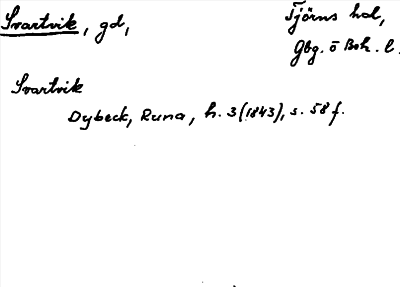 Svartvik, gd,
Tjörns hd,
Gbg. o Boh. l.
Svartvik
Dybeck, Runa, h. 3 (1843), s. 58 f.